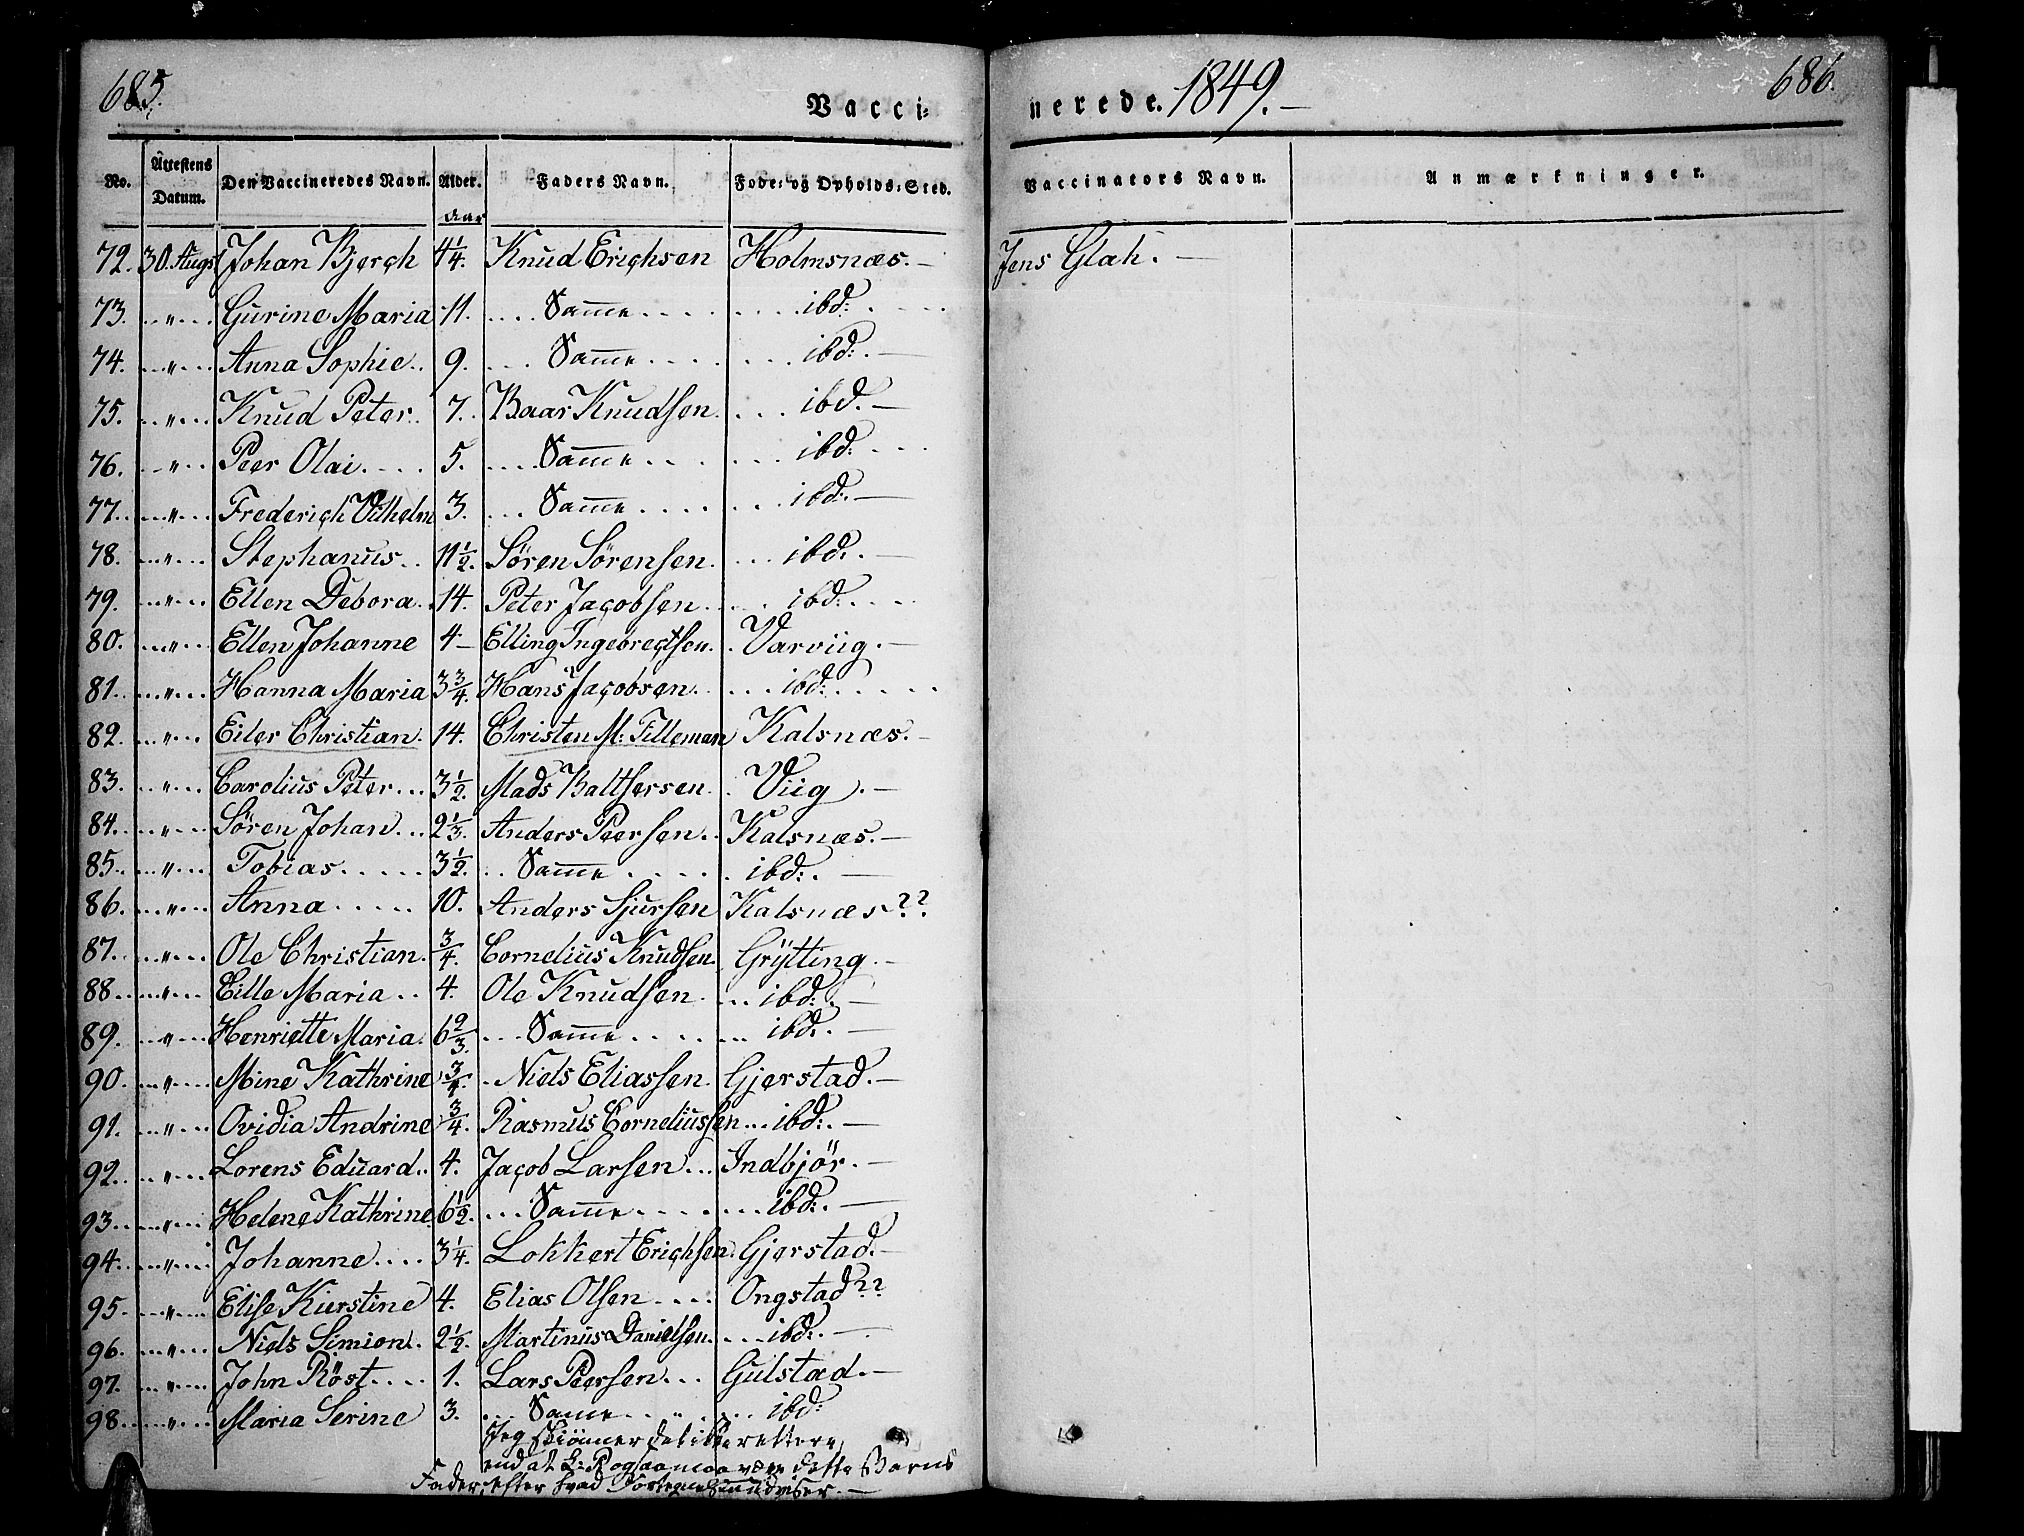 685.
Vacci:
nerede. 1849.
686.
No. Attestens Datum. Den Vaccineredes Navn. Alder. Faders Navn. Føde: og Opholds: Sted. Vaccinators Navn. Anmærkninger.
Aar
72. 30. Augst Johan Bjerch 4 1/4. Knud Erichsen Holmsnæs. Jens Glah.
73. " Gurine Maria 11. Samme ibd:
74. " Anna Sophie 9. Samme ibd:
75. " Knud Peter 7. Baar Knudsen ibd.
76. " Peer Olai 5. Samme ibd:
77. " Frederich Vilhelm 3. Samme ibd:
78. " Stephanus 11 1/2. Sören Sörensen ibd:
79. " Ellen Debora 14. Peter Jacobsen ibd:
80. " Ellen Johanne 4 Elling Ingebrectsen Varviig.
81. " Hanna Maria 3 3/4. Hans Jacobsen ibd:
82. " Eiler Christian 14. Christen M: Tilleman Kalsnæs.
83. " Carolius Peter 3 1/2. Mads Balthersen Viig.
84. " Sören Johan 2 1/3. Anders Peersen Kalsnæs.
85. " Tobias 3 1/2. Samme ibd:
86. " Anna 10. Anders Sjursen Kalsnæs??
87. " Ole Christian 3/4. Cornelius Knudsen Grÿtting.
88. " Cille Maria 4. Ole Knudsen ibd:
89. " Henriette Maria 6 2/3. Samme ibd:
90. " Mine Kathrine 3/4. Niels Eliassen Gjerstad.
91. " Ovidia Andrine 3/4. Rasmus Corneliussen ibd:
92. " Lorens Eduard 4. Jacob Larsen Indbjör.
93. " Helene Kathrine 6 1/2. Samme ibd:
94. " Johanne 3 1/4. Lokkert Erichsen Gjerstad.
95. " Elise Kierstine 4. Elias Olsen Ongstad??
96. " Niels Simion 2 1/2. Martinus Danielsen ibd:
97. " John Röst 1. Lars Peersen Gulstad.
98. " Maria Serine 3. Samme ibd:
Jeg skiönner det ikke rettere,
end at L: P. ogsaa maa være dette Barns
Fader, efter hvad Fortegnelsen udviser.